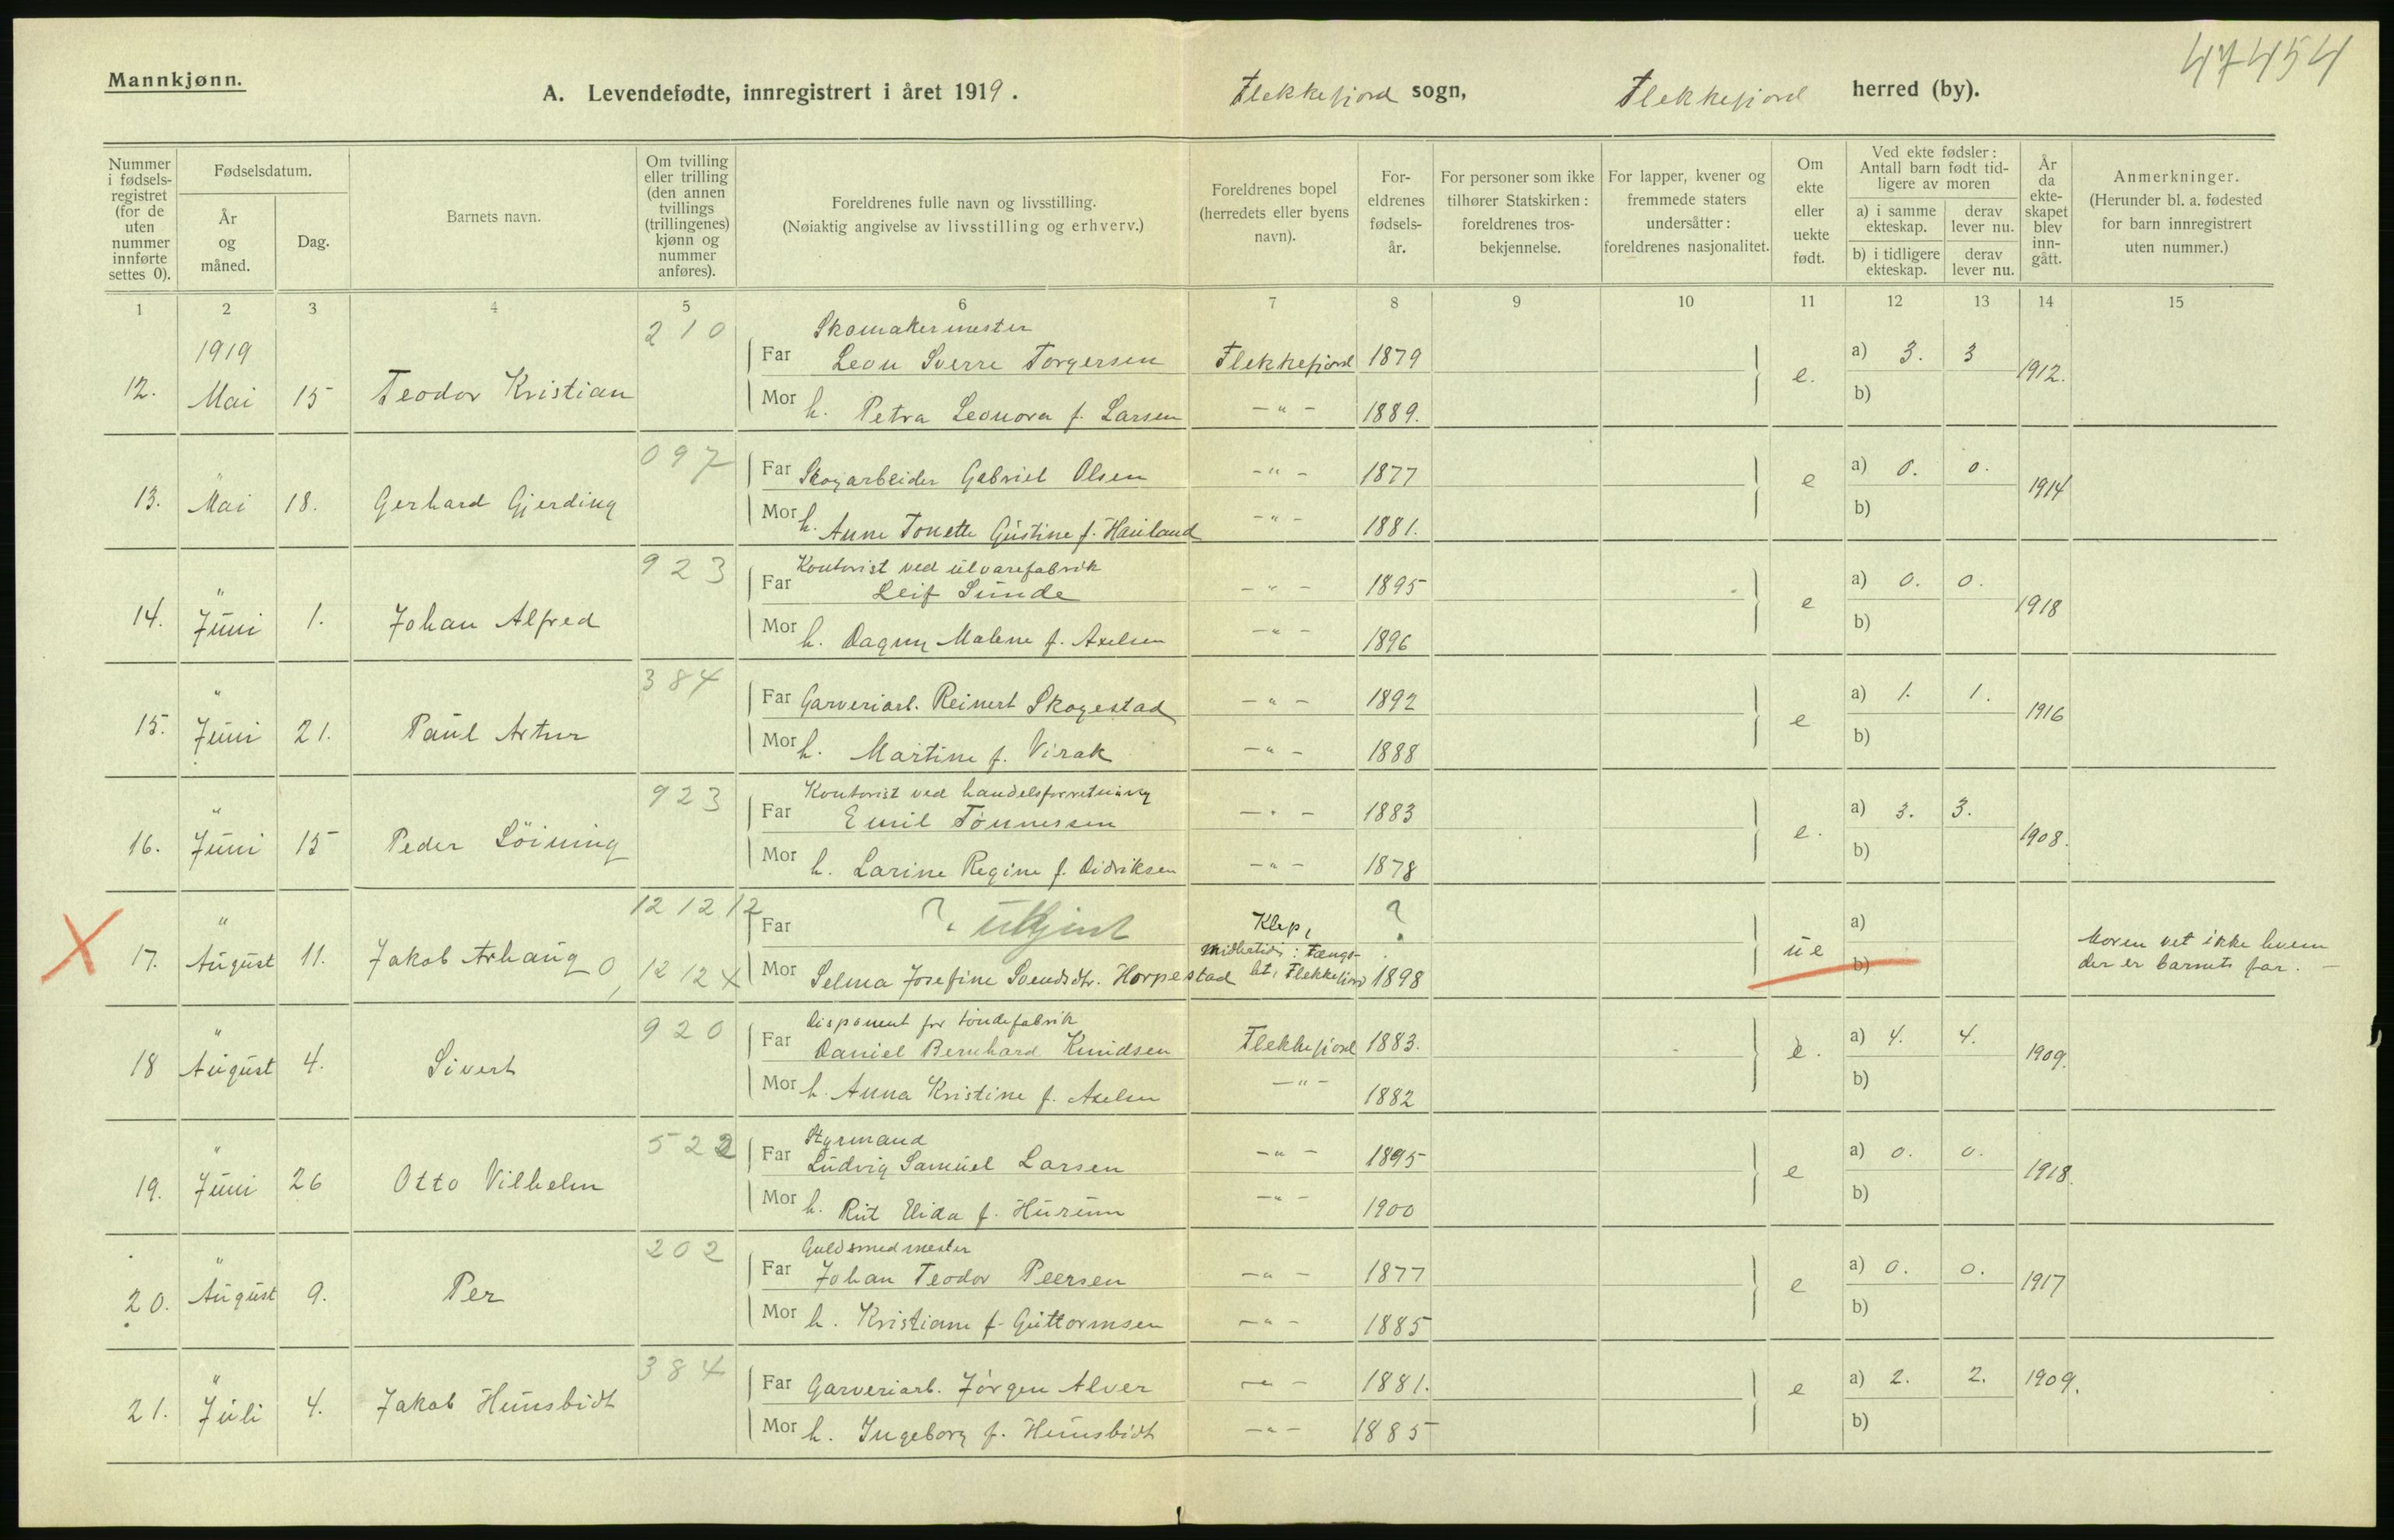 47454
Mannkjønn.
A. Levendefødte, innregistrert i året 1919. Flekkefjord sogn, Flekkefjord herred (by).
Nummer i fødsels-registret (for de uten nummer innførte settes 0).
Fødselsdatum.
År og måned.
Dag.
Barnets navn.
Om tvilling eller trilling (den annen tvillings (trillingenes) kjønn og nummer anføres).
Foreldrenes fulle navn og livsstilling.
(Nøiaktig angivelse av livsstilling og erhverv.)
Foreldrenes bopel (herredets eller byens navn).
For-eldrenes fødsels-år.
For personer som ikke tilhører Statskirken: foreldrenes tros-bekjennelse.
For lapper, kvener og fremmede staters undersåtter: foreldrenes nasjonalitet.
Om ekte eller uekte født.
Ved ekte fødsler: Antall barn født tid-ligere av moren
a) i samme ekteskap. derav lever nu.
b) i tidligere ekteskap. derav lever nu.
År da ekte-skapet blev inn-gått.
Anmerkninger.
(Herunder bl. a. fødested for barn innregistrert uten nummer.)
1 2 3 4 5 6 7 8 9 10 11 12 13 14 15
210 Skomakermester
1919 Far Leon Sverre Torgersen Flekkefjord 1879 a) 3. 3
12. Mai 15 Teodor Kristian e. 1912.
Mor h. Petra Leonora f. Larsen -"- 1889. b)
097 Far Skogarbeider Gabriel Olsen -"- 1877 a) 0. 0.
13. " Mai 18. Gerhard Gjerding e 1914
Mor h. Anne Tonette Gustine f. Hauland -"- 1881. b)
923 Kontorist ved ulvarefabrik
Far Leif Sunde -"- 1895 a) 0. 0.
14. " Juni 1. Johan Alfred e 1918
Mor h. Dagny Malene f. Axelsen -"- 1896 b)
384 Far Garveriarb. Reinert Skogestad -"- 1892 a) 1. 1.
15. " Juni 21. Paul Artur e 1916
Mor h. Martine f. Virak -"- 1888 b)
923 Kontorist ved handelsforretning
Far Emil Tönnessen -"- 1883 a) 3. 3.
16. " Juni 15 Peder Löining e. 1908.
Mor h. Larine Regine f. Didriksen -"- 1878 b)
12 12 12 Far ? ukjent Klep, ? a)
X 17. " August 11. Jakob Arhaug ue Moren vet ikke hvem
midlertidi: Fængs- b) der er barnets far. -
0, 12 12 X Mor Selma Josefine Svendsdtr. Horpestad let, Flekkefjord 1898
920 Disponent for töndefabrik
Far Daniel Bernhard Knudsen Flekkefjord 1883. a) 4. 4.
18 " August 4. Sivert e. 1909.
Mor h. Anna Kristine f. Axelsen -"- 1882 b)
522 Styrmand
Far Ludvig Samuel Larsen -"- 1895 a) 0. 0.
19. " Juni 26 Otto Vilhelm e 1918.
Mor h. Rut f. Hurum -"- 1900 b)
202 Guldsmedmester
Far Johan Teodor Peersen -"- 1877 a) 0. 0.
20. " August 9. Per e 1917
Mor h. Kristiane f. Guttormsen -"- 1885 b)
384 Far Garveriarb. Jörgen Alver -"- 1881. a) 2. 2. 1909.
21. " Juli 4. Jakob Hunsbidt e
Mor h. Ingeborg f. Hunsbidt -"- 1885 b)